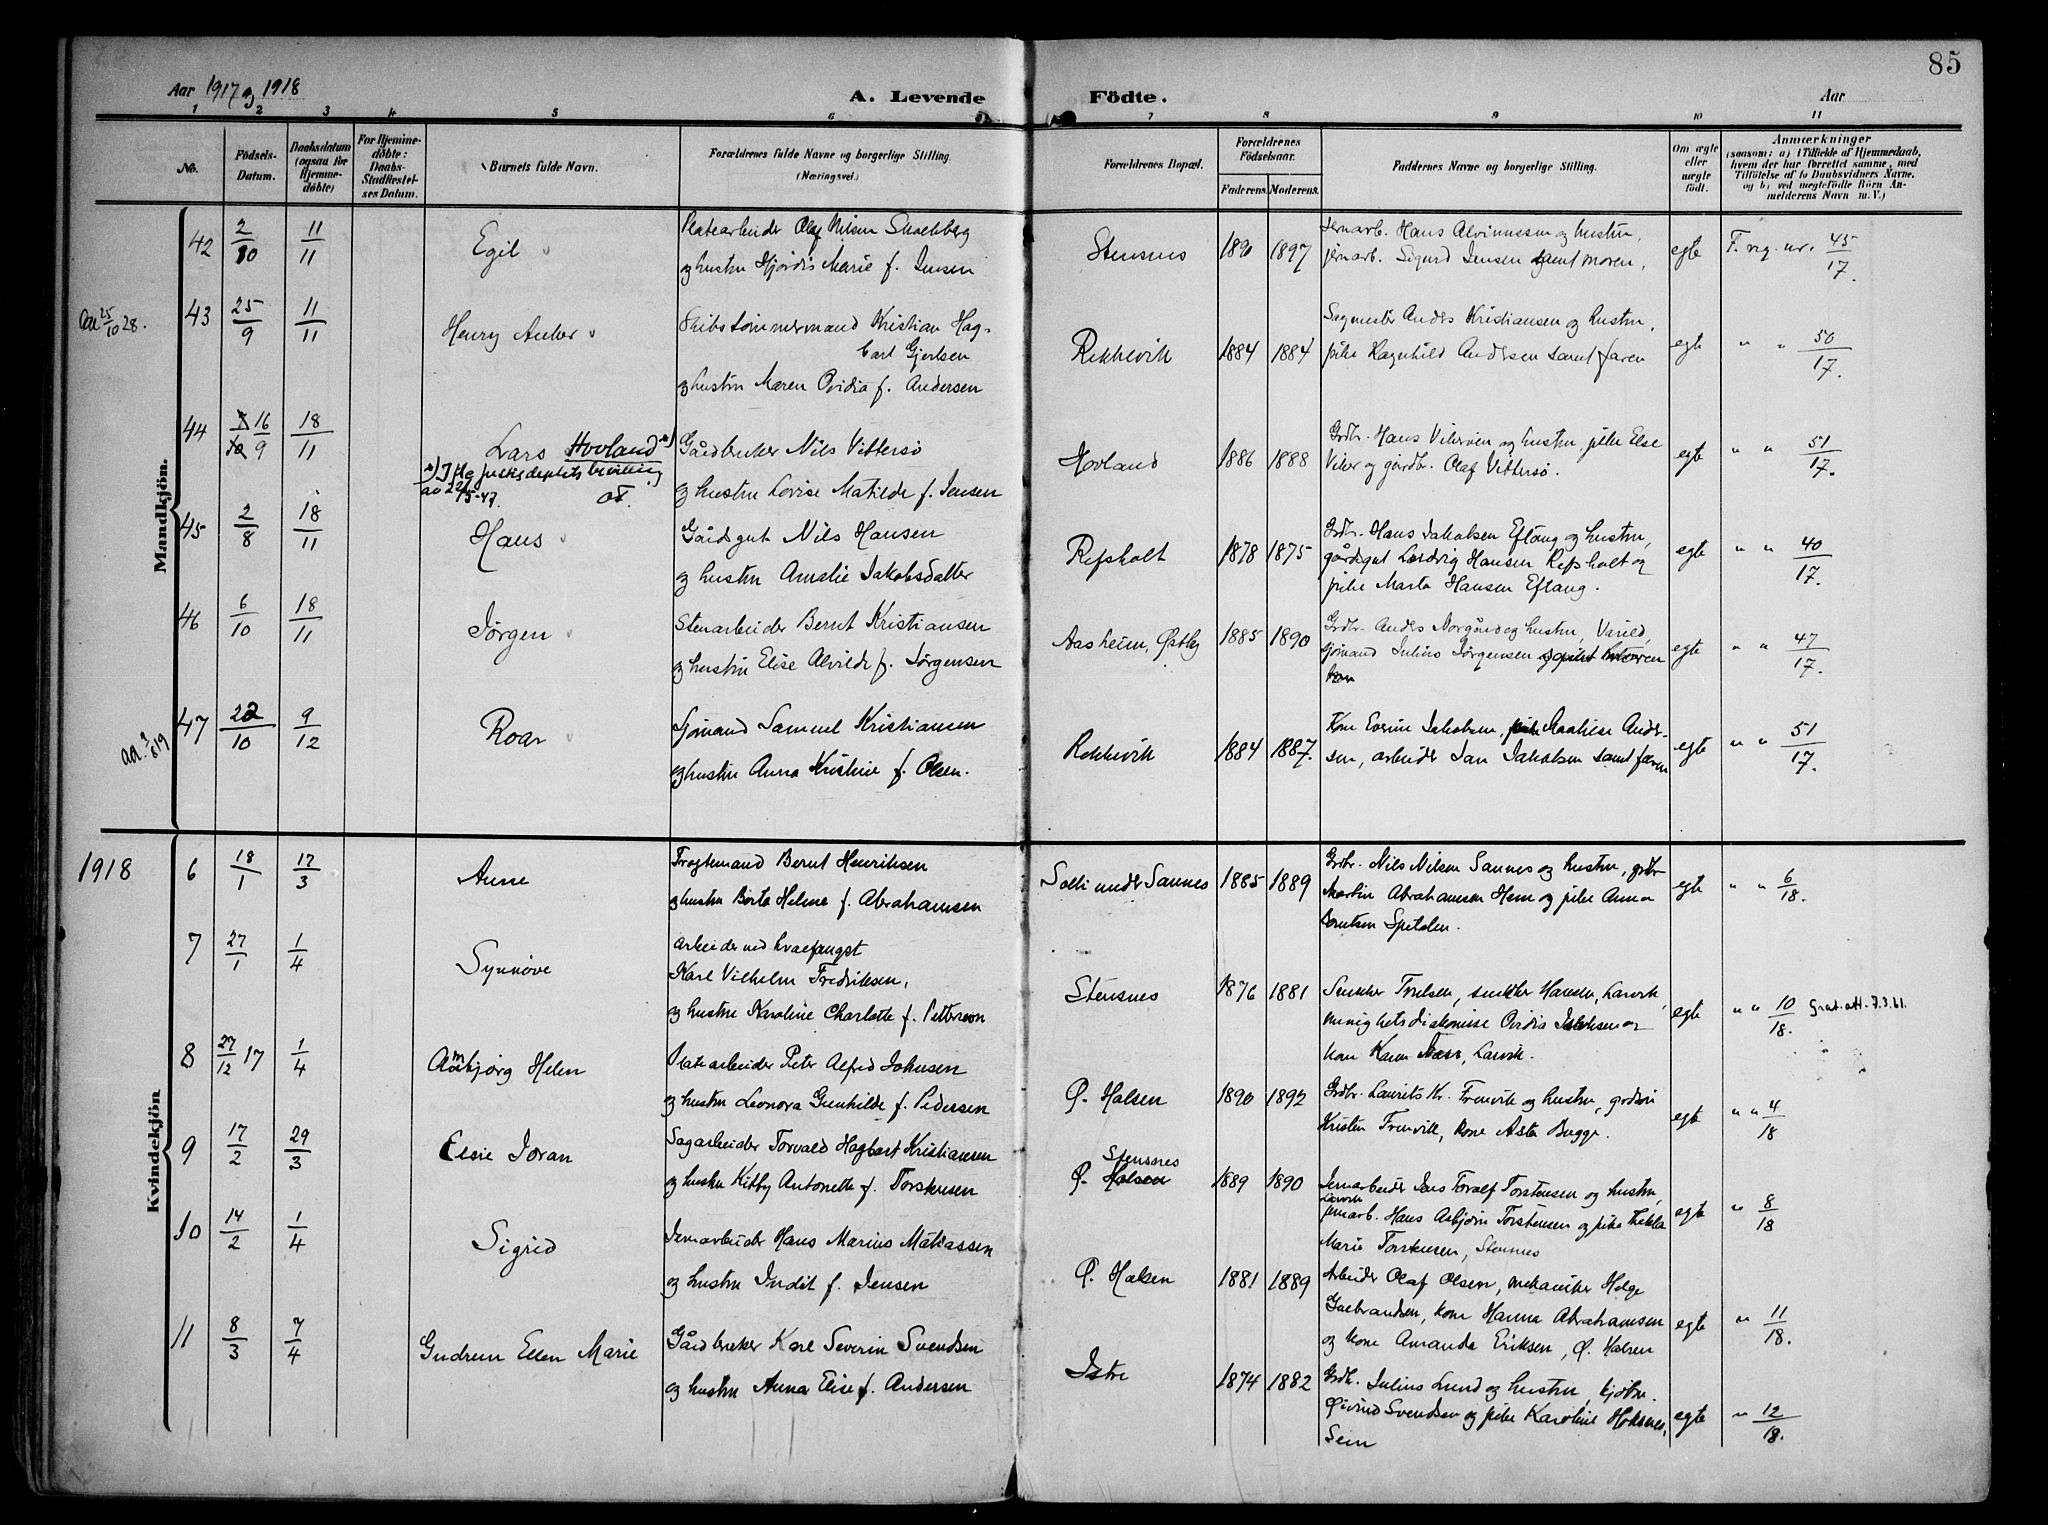 85
Aar 1917 og 1918
A. Levende Födte.
Aar
1 2 3 4 5 6 7 8 9 10 11
No.
Födsels-Datum.
Daabsdatum (ogsaa for Hjemmedöbte)
For Hjemmedöbte: Daabs-Stadfæstelses Datum.
Barnets fulde Navn.
Forældrenes fulde Navne og borgerlige Stilling. (Næringsvei.)
Forældrenes Bopæl.
Forældrenes Födselsaar.
Faderens. Moderens.
Faddernes Navne og borgerlige Stilling.
Om ægte eller uægte födt.
Anmærkninger
(saasom: a) i Tilfælde af Hjemmedaab,
hvem der har forrettet samme, med
Tilföielse af to Daabsvidners Navne,
og b) ved uægtefödte Börn Anmelderens Navn m. V.)
Mandkjön.
42 2/10 11/11 Egil
Platearbeider Olaf Nilsen
og hustru Hjørdis Marie f. Jensen
Stensnes 1890 1897
Jernarb. Hans Alvinnesen og hustru,
jernarb. Sigurd Jensen samt moren,
egte F. reg. nr. 45/17.
25/10 28.
43 25/9 11/11 Henry Anker
Skibstømmermand Kristian Hag-
bart Gjertsen
og hustru Maren Ovidia f. Andersen
Rekkevik 1884 1884
Sagmester Anders Kristiansen og hustru,
pike Ragnhild Andersen samt faren
egte " " 50/17.
44 16/9 18/11 Lars Hovland x)
x) J. flg justisdeptets bevilling
av 22/5-47.
Gårdbruker Nils Vittersø
og hustru Lovise Matilde f. Jensen
Hovland 1886 1888
Grdbr. Hans Vilerøen og hustru, pike Else
Viler og gårdbr. Olaf Vittersø.
egte " " 51/17.
45 2/8 18/11 Hans
Gårdsgut Nils Hansen
og hustru Amalie Jakobsdatter
Refsholt 1878 1875
Grdbr. Hans Jakobsen Eftang og hustru,
gårdsgut Ludvig Hansen Refsholt og
pike Marta Hansen Eftang.
egte " " 40/17.
46 6/10 18/11 Jørgen
Stenarbeider Bernt Kristiansen
og hustru Elise Alvilde f. Jørgensen
Aasheim, Østby 1885 1890
Grdbr. Anders Norgård og hustru, Varild,
sjømand Julius Jørgensen
egte " " 47/17.
47 22/10 9/12 Roar
Sjømand Samuel Kristiansen
og hustru Anna Kristine f. Olsen.
Rekkevik 1884 1887.
Kone Evenine Jakobsen, Mathese Ander-
sen, arbeider Jan Jakobsen samt faren
egte " " 51/17.
1918
Kvindekjön
6 18/1 17/3 Anne
Fragtemand Bernt Henriksen
og hustru Berta Helene f. Abrahamsen
Solli under Sannes 1885 1889
Grdbr. Nils Nilsen Sannes og hustru, grdbr
Martin Abrahamsen Hem og pike Anna
Berntsen Spitalen.
egte " " 6/18.
7 27/1 1/4 Synnøve
Arbeider ved hvalfangst
Karl Vilhelm Fredriksen,
og hustru Karoline Charlotte f. Petterson
Stensnes 1876 1881
Snekker Torelsen, snekker Hansen, Larvik,
menighetsdiakonisse Ovidia Jakobsen og
kone Karen Næss, Larvik.
egte " " 10/18. Grat.att. 7.3.61.
8 27/12 17 1/4 Aambjørg Helen
Platearbeider Peter Alfred Johnsen
og hustru Leonora Gunhilde f. Pedersen
Ø. Halsen 1890 1892
Grdbr. Laurits Kr. Frenvik og hustru, grdbr
Kristen Frenvik, kone Asta Bugge.
egte " " 4/18
9 17/2 29/3 Elsie Joran
Sagarbeider Torvald Hagbart Kristiansen
og hustru Kitty Antonette f. Torstensen
Stensnes
Ø. Halsen 1889 1890
Jernarbeider Jens Toralf Torstensen og hustru,
Larvik
jernarb. Hans Asbjørn Torstensen og pike Thekla
Marie Torstensen, Stensnes
egte " 8/18
10 14/2 1/4 Sigrid
Jernarbeider Hans Marius Matiassen
og hustru Indit f. Jensen
Ø. Halsen 1881 1889
Arbeider Olaf Olsen, mekaniker Helge
Gulbrandsen, kone Hanna Abrahamsen
og kone Amanda Eriksen, Ø. Halsen
egte " 11/18.
11 8/3 7/4 Gudrun Ellen Marie
Gårdbruker Karl Severin Svendsen
og hustru Anna Elise f. Andersen
Istre 1874 1882
Grdbr. Julius Lund og hustru, kjøbm.
Øivind Svendsen og pike Karoline Holsnes,
Sem
egte " 12/18.